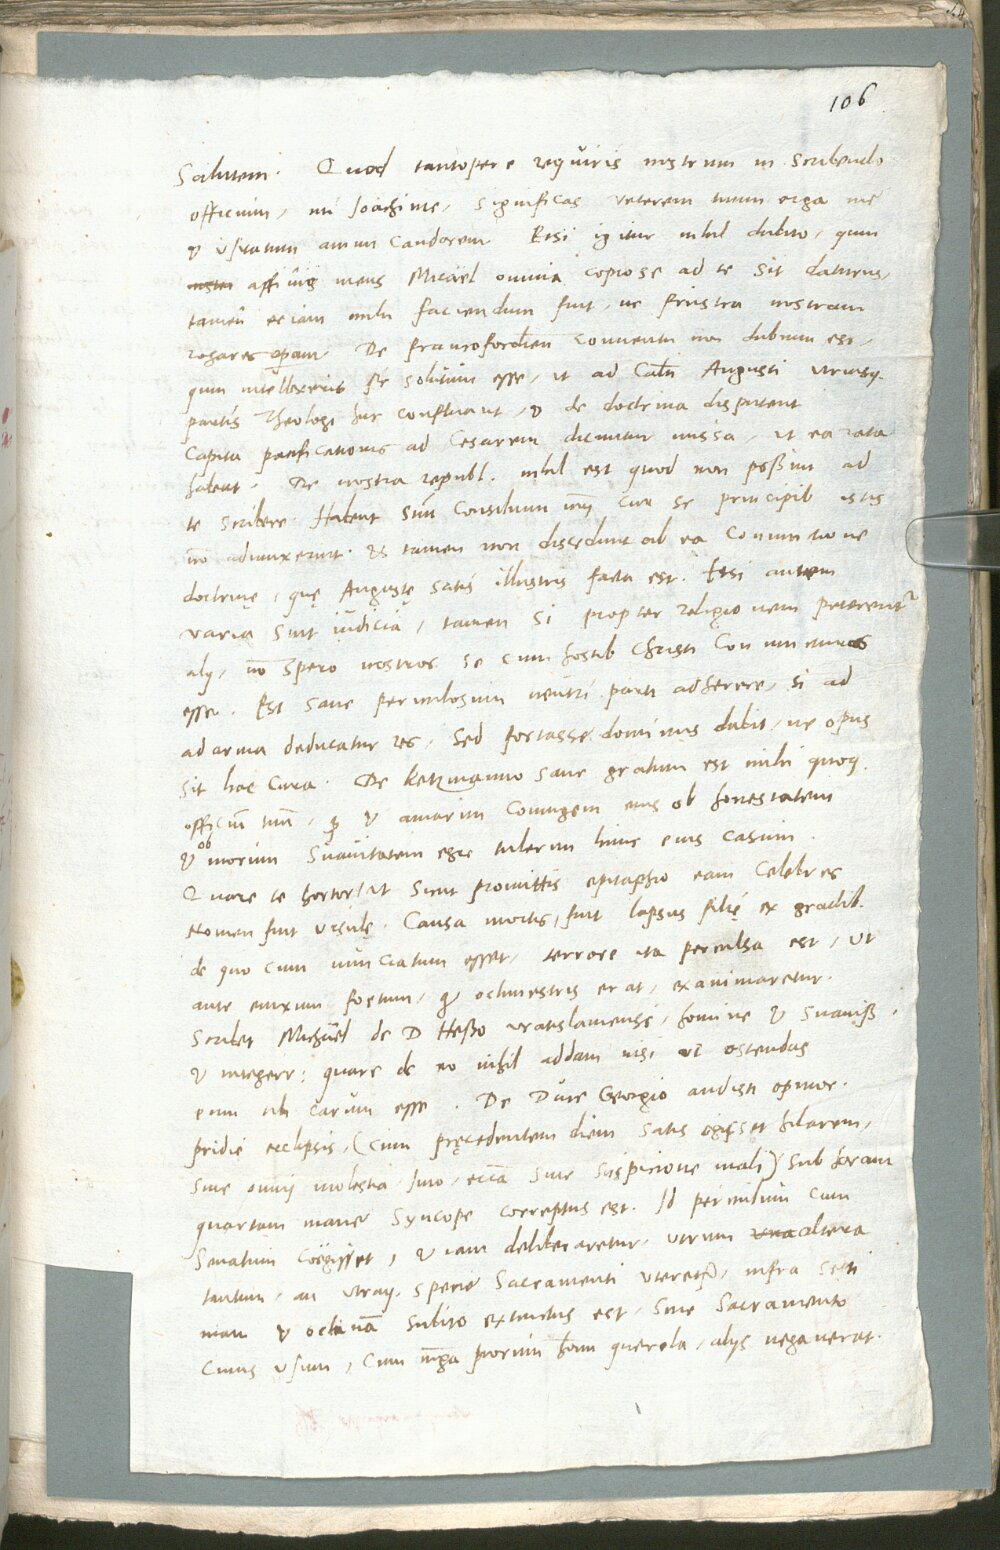 106
Salutem. Quod tantopere requiris nostrum in scribendo
officium, mi Joachime, significas veterem tuum erga me
& usitatum animi candorem. Etsi igitur nihil dubito, quin
affinis meus Micaël omnia copiose ad te sit daturus,
tamen eciam mihi faciendum fuit, ne frustra nostram
rogares operam. De francofordien conventu non dubium est,
quin intellexeris sic solutum esse, ut ad Cal: Augusti utriusq.
partis Theologi huc confluant, & de doctrina disputent
Capita pacificationis ad Cesarem dicuntur missa, ut ea rata
habeat. De nostra republ. nihil est quod non possim ad
te scribere. Habent suu Consilium cur se principib istis
no adiunxerint. Et tamen non discedunt ab ea Coniunctione
doctrinę, quę Augustę satis illustris facta est. Etsi autem
varia sint iudicia, tamen si propter religionem peterentur
alij, no spero nostros se cum hostib Christi Coniuncturos
esse. Est sane periculosum neutri parti adherere, si ad
ad arma deducatur res, Sed fortasse dominus dabit, ne opus
sit hac cura. De Ketzmanno sane gratum est mihi quoq.
officiu tuu, & amarim Coniugem eius ob honestatem
& ob morum suavitatem egre tulerim hunc eius casum.
Quare te hortor, ut sicut promittis epitaphio eam celebres
Nomen fuit Ursulę. Causa mortis, fuit lapsus filię ex gradib.
de quo cum nunciatum esset, terrore ita perculsa est, ut
ante enixum foetum, qui octimestris erat, exanimaretur.
Scribet Michaël de D Hesso vratislaviensi, homine & suaviss.
& integerr: quare de eo nihil addam nisi ut ostendas
eum tibi carum esse. De Duce Georgio audisti opinor.
pridie ecclipsis, (cum pręcedentem diem satis egisset hilarem,
sine omni molestia, Imo, ecia sine suspicione mali) sub horam
quartam mane syncope correptus est. Id periculum cum
Senatum coëgisset, & iam deliberaretur, utrum una altera
tantum, an utraq. specie Sacramenti uteretur, infra
& octava subito extinctus est, sine Sacramento
Cuius usum, cum piorum hom querela, alijs negaverat.